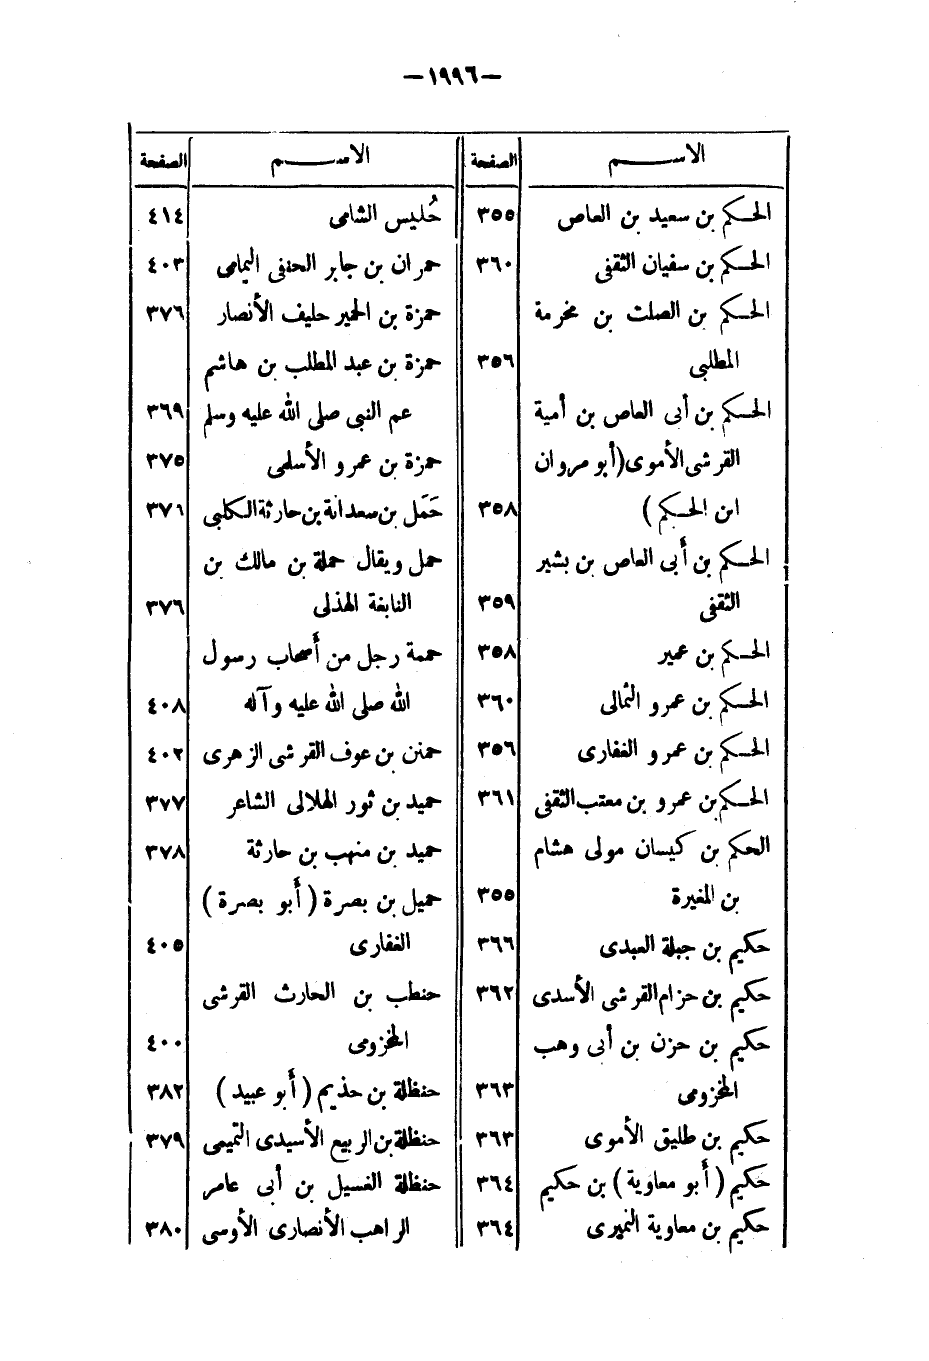 —١٩٩٦—
الاسم الصفحة
الحكم بن سعيد بن العاص ٣٥٥
الحكم بن سفيان الثقفى ٣٦٠
الحكم بن الصلت بن مخرمة
المطلبى ٣٥٦
الحكم بن أبى العاص بن أمية
القرشى الأموى (أبو مروان
ابن الحكم) ٣٥٨
الحكم بن أبى العاص بن بشير
الثقفى ٣٥٩
الحكم بن عمير ٣٥٨
الحكم بن عمرو الثمالى ٣٦٠
الحكم بن عمرو الغفارى ٣٥٦
الحكم بن عمرو بن معتب الثقفى ٣٦١
الحكم بن كيسان مولى هشام
بن المغيرة ٣٥٥
حكيم بن جبلة العبدى ٣٦٦
حكيم بن حزام القرشى الأسدى ٣٦٢
حكيم بن حزن بن أبى وهب
المخزومى ٣٦٣
حكيم بن طليق الأموى ٣٦٣
حكيم (أبو معاوية) بن حكيم ٣٦٤
حكيم بن معاوية النميرى ٣٦٤
الاسم الصفحة
حُليس الشامى ٤١٤
حمران بن جابر الحنفى اليمامى ٤٠٣
حمزة بن الحمير حليف الأنصار ٣٧٦
حمزة بن عبد المطلب بن هاشم
عم النبى صلى الله عليه وسلم ٣٦٩
حمزة بن عمرو الأسلمى ٣٧٥
حَمَل بن سعدانة بن حارثة الكلبى ٣٧٦
حمل ويقال حملة بن مالك بن
النابغة الهذلى ٣٧٦
حممة رجل من أصحاب رسول
الله صلى الله عليه وآله ٤٠٨
حمنن بن عوف القرشى الزهرى ٤٠٢
حميد بن ثور الهلالى الشاعر ٣٧٧
حميد بن منهب بن حارثة ٣٧٨
حميل بن بصرة (أبو بصرة)
الغفارى ٤٠٥
حنطب بن الحارث القرشى
المخزومى ٤٠٠
حنظلة بن حذيم (أبو عبيد) ٣٨٢
حنظلة بن الربيع الأسيدى التميمى ٣٧٩
حنظلة الغسيل بن أبى عامر
الراهب الأنصارى الأوسى ٣٨٠